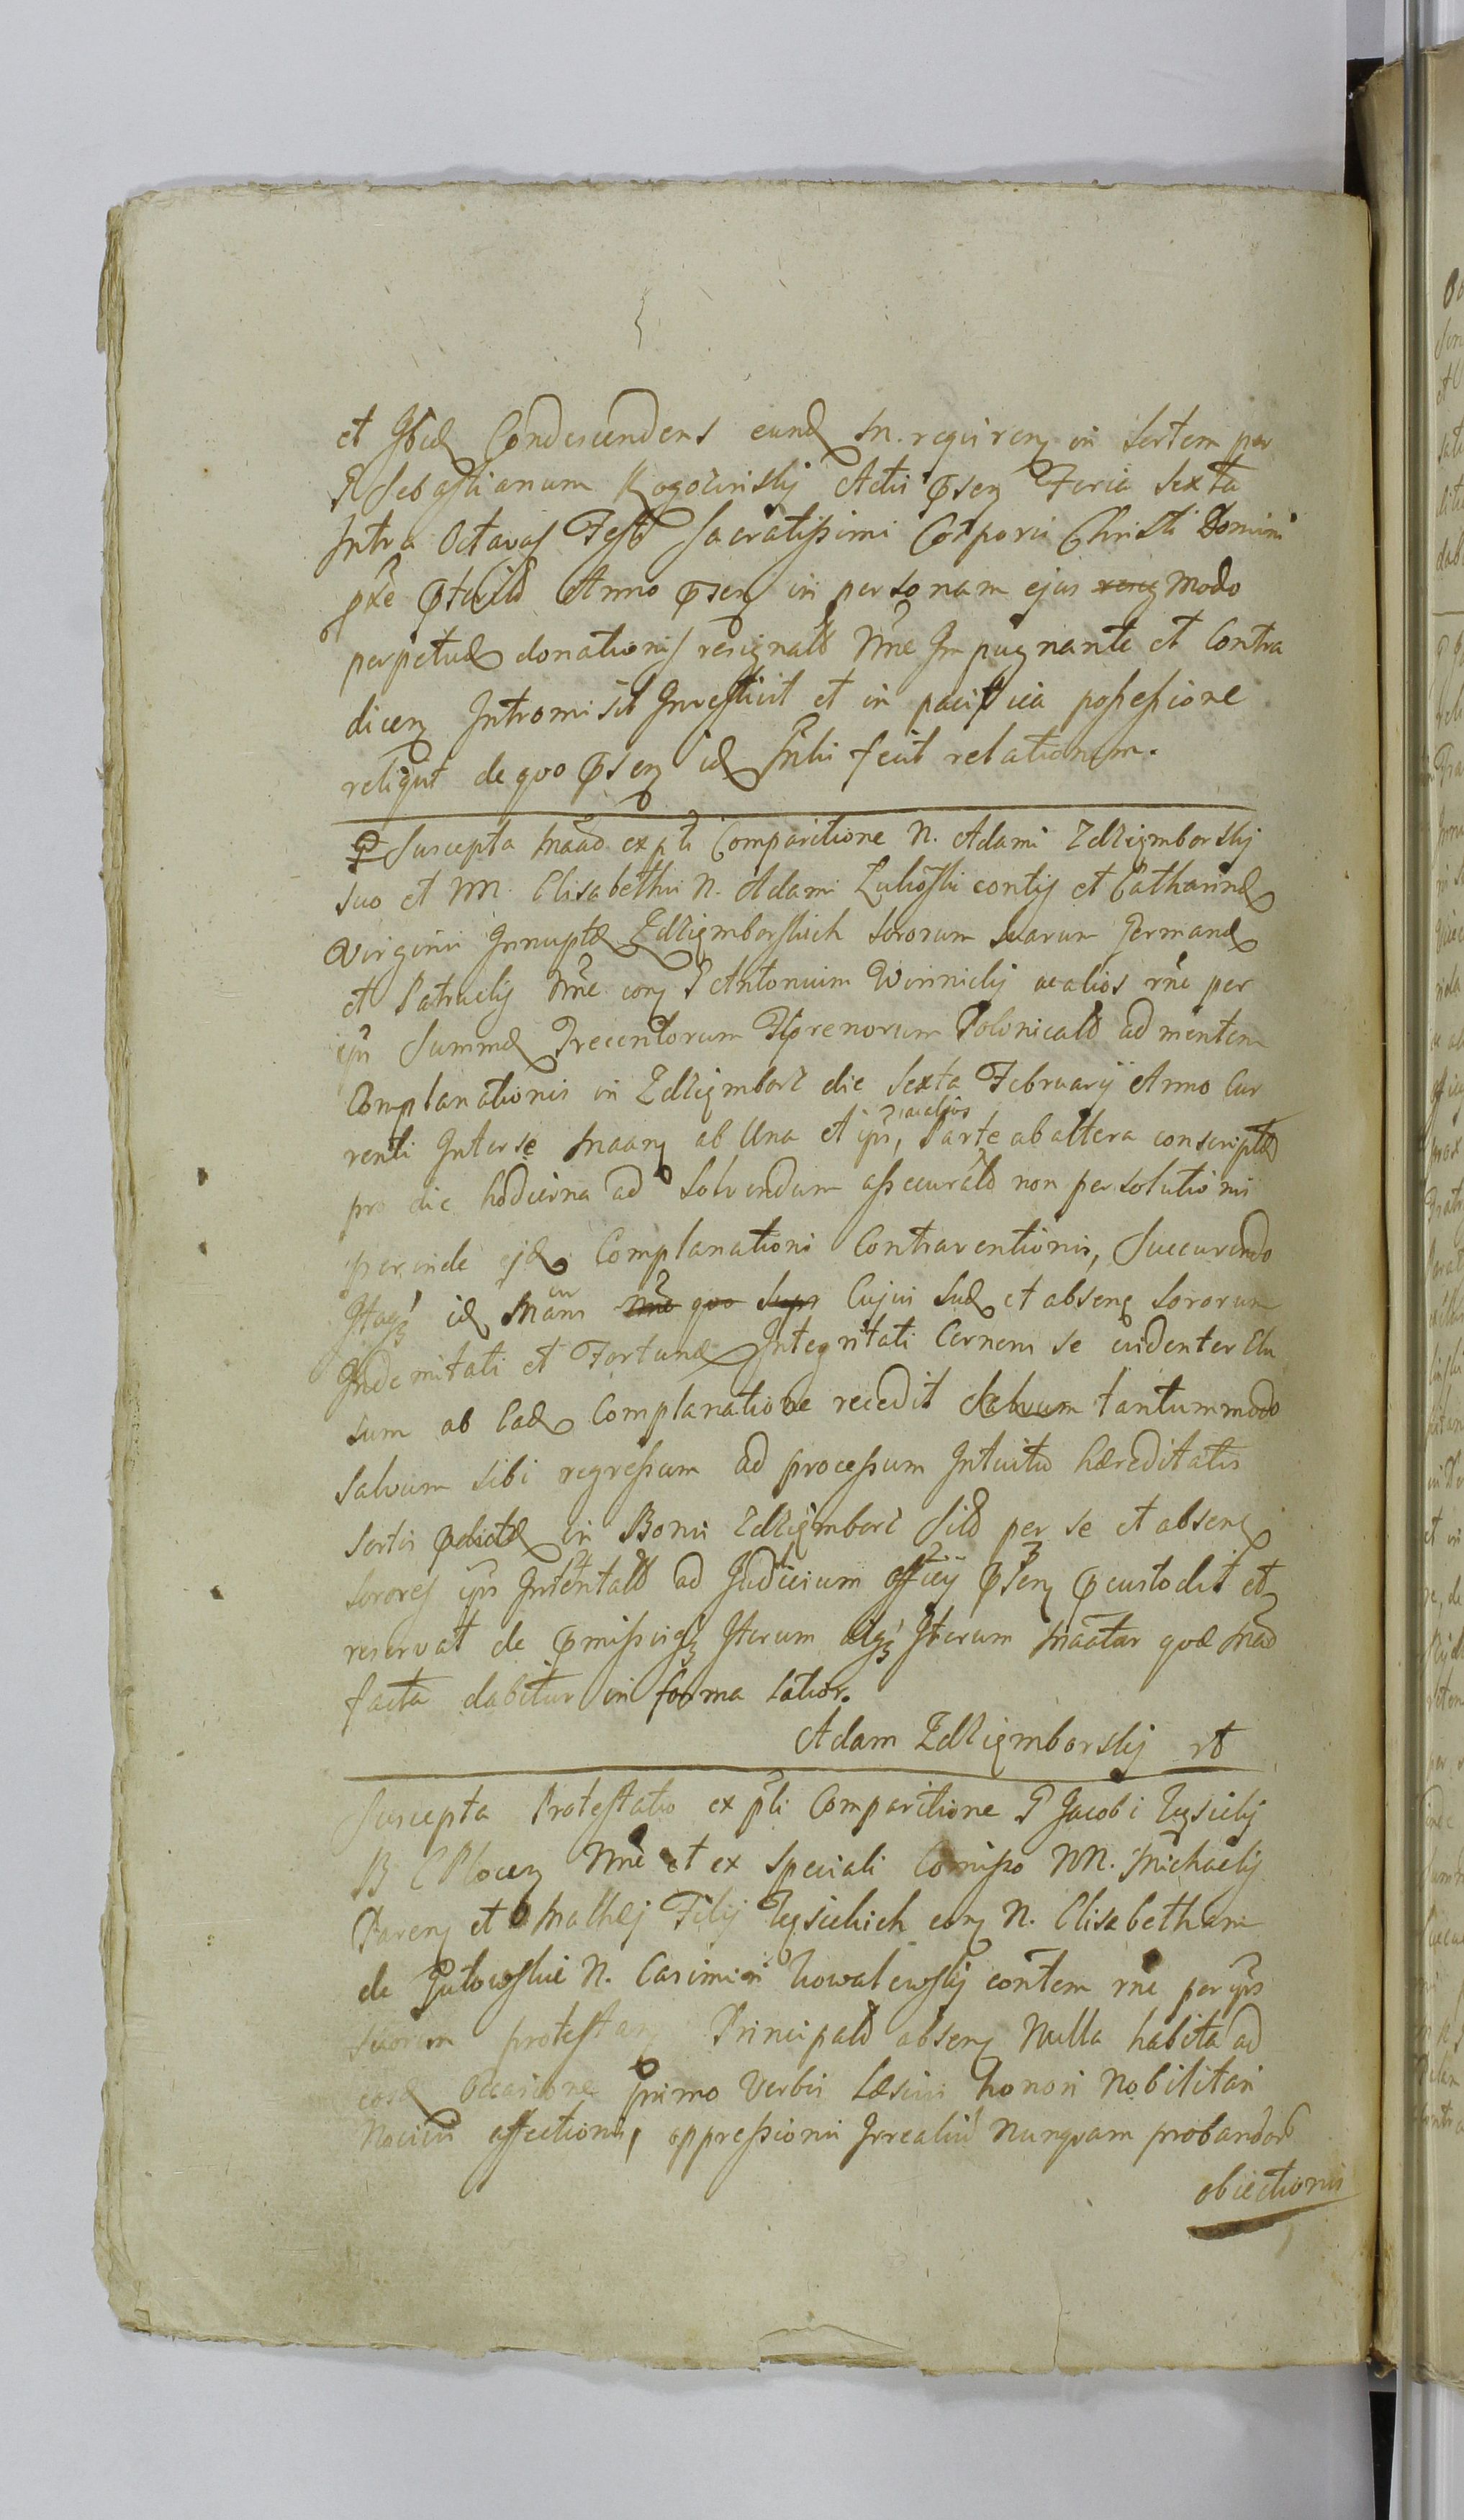 et Ibid Condescendens eund M. requiren in Sortem per
G Sebastianum Rogozinskj Actis psen Feria Sexta
Intra Octavas Festi Sacratissimi Corporis Christi Domini
pxe pterita Anno psen in personam ejus modo
perpetuæ donationis resignat Nne Impugnante et Contra
dicen Intromisit Investivit et in pacifica possessione
reliquit de quo psen id Mnlis fecit relationem.
Suscepta Maão ex pli Comparitione N. Adami Zdzięmborskj
suo et NN. Elisabethæ N. Adami contis et Catharinæ
Virginis Innuptæ Zdzięmborskich Sororum Suarum Germanæ
et Patruelis Nne con G Antonium Winnickj acalios rne per
ips Summæ Trecentorum Flprenorum Polonicalis ad mentem
Complanationis in Zdzięmborz die Sexta Februarij Anno Cur
renti Inter se Maan ab Una et ips, acalios Parte ab altera conscriptæ
pro die hodierna ad Solvendum assecurat non persolutionis
perinde ejd Complanationi Contraventionis, Succurendo
Itaq id Mans cum Nne quo Supr Cujus Suæ et absen Sororum
Indemnitati et Fortunæ Integritati Cernens se evidenter Elu
sum ab Ead Complanatione recedit Salvum tantummodo
salvum sibi regressum ad processum Intuitu hæreditatis
sortis pdictæ in Bonis Zdzięmborz Sit per se et absen
sorores ips Intentat ad Judicium officij psen pcustodit et
reservat de pmissisq Iterum atq Iterum Maatur quæ Maão
facta dabitur in forma latior.
Adam Zdzięmborskj
Suscepta Protestatio ex pli Comparitione G Jacobi
B C Plocen Nne et ex Speciali Comisso NN. Michaelis
Paren et Mathej Filij con N. Elisabetham
de Gutowskie N. Casimiri Kowalewskj contem rne per ips
suorum protestan Principal absen Nulla habita ad
eosd Occasione primo Verbis Læsivis honori Nobilitari
Nocivis affectionis, oppressionis Irrealium Nunquam probandor
obiectionis